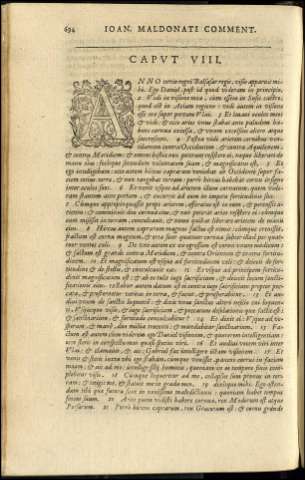 694 IOAN. MALDONATI COMMENT.
CAPVT VIII.
ANNO tertio regni Baltassar regis, visio apparuit mihi.
Ego Daniel, post id quod videram in principio,
2 Vidi in visione mea, cùm essem in Susis castro,
quod est in regione: vidi autem in visione
esse me super portam Vlai. 3 Et leuaui oculos meos
& vidi: & ecce aries vnus stabat ante paludem, habens
cornua excelsa, & vnum excelsius altero atque
succrescens. 4 Postea vidi arietem cornibus ventilantem
contra Occidentem, & contra Aquilonem,
& contra Meridiem: & omnes bestiæ non poterant resistere ei, neque liberari de
manu eius: fecitque secundùm voluntatem suam, & magnificatus est. 5 Et
ego intelligebam: ecce autem hircus caprarum veniebat ab Occidente super faciem
totius terræ, & non tangebat terram: porrò hircus habebat cornu insigne
inter oculos suos. 6 Et venit vsque ad arietem illum cornutum, quem videram
stantem ante portam, & cucurrit ad eum in impetu fortitudinis suæ.
7 Cùmque appropinquasset prope arietem, efferatus est in eum, & percussit arietem:
& comminuit duo cornua eius, & non poterat aries resistere ei: cùmque
eum misisset in terram, conculcauit, & nemo quibat liberare arietem de manu
eius. 8 Hircus autem caprarum magnus factus est nimis: cùmque creuisset,
fractum est cornu magnum, & orta sunt quatuor cornua subter illud per quatuor
ventos cæli. 9 De vno autem ex eis egressum est cornu vnum modicum:
& factum est grande contra Meridiem, & contra Orientem, & contra fortitudinem.
10 Et magnificatum est vsque ad fortitudinem cæli: & deiecit de fortitudine,
& de stellis, & conculcauit eas. 11 Et vsque ad principem fortitudinis
magnificatum est: & ab eo tulit iuge sacrificium, & deiecit locum sanctificationis
eius. 12 Robur autem datum est ei contra iuge sacrificium propter peccata,
& prosternetur veritas in terra, & faciet, & prosperabitur. 13 Et audiui
vnum de sanctis loquentem: & dixit vnus sanctus alteri nescio cui loquenti:
Vsquequo visio, & iuge sacrificium, & peccatum desolationis quæ facta est:
& sanctuarium, & fortitudo conculcabitur? 14 Et dixit ei: Vsque ad vesperam,
& mane, duo millia trecenti: & mundabitur sanctuarium. 15 Factum
est autem cùm viderem ego Daniel visionem, & quærerem intelligentiam:
ecce stetit in conspectu meo quasi species viri. 16 Et audiui vocem viri inter
Vlai: & clamauit, & ait: Gabriel fac intelligere istam visionem. 17 Et
venit & stetit iuxta vbi ego stabam: cùmque venisset, pauens corrui in faciem
meam: & ait ad me: Intellige fili hominis, quoniam in tempore finis complebitur
visio. 18 Cùmque loqueretur ad me, collapsus sum pronus in terram:
& tetigit me, & statuit me in gradu meo. 19 dixitque mihi: Ego ostendam
tibi quæ futura sunt in nouissimo maledictionis: quoniam habet tempus
finem suum. 20 Aries quem vidisti habere cornua, rex Medorum est atque
Persarum. 21 Porrò hircus caprarum, rex Græcorum est: & cornu grande